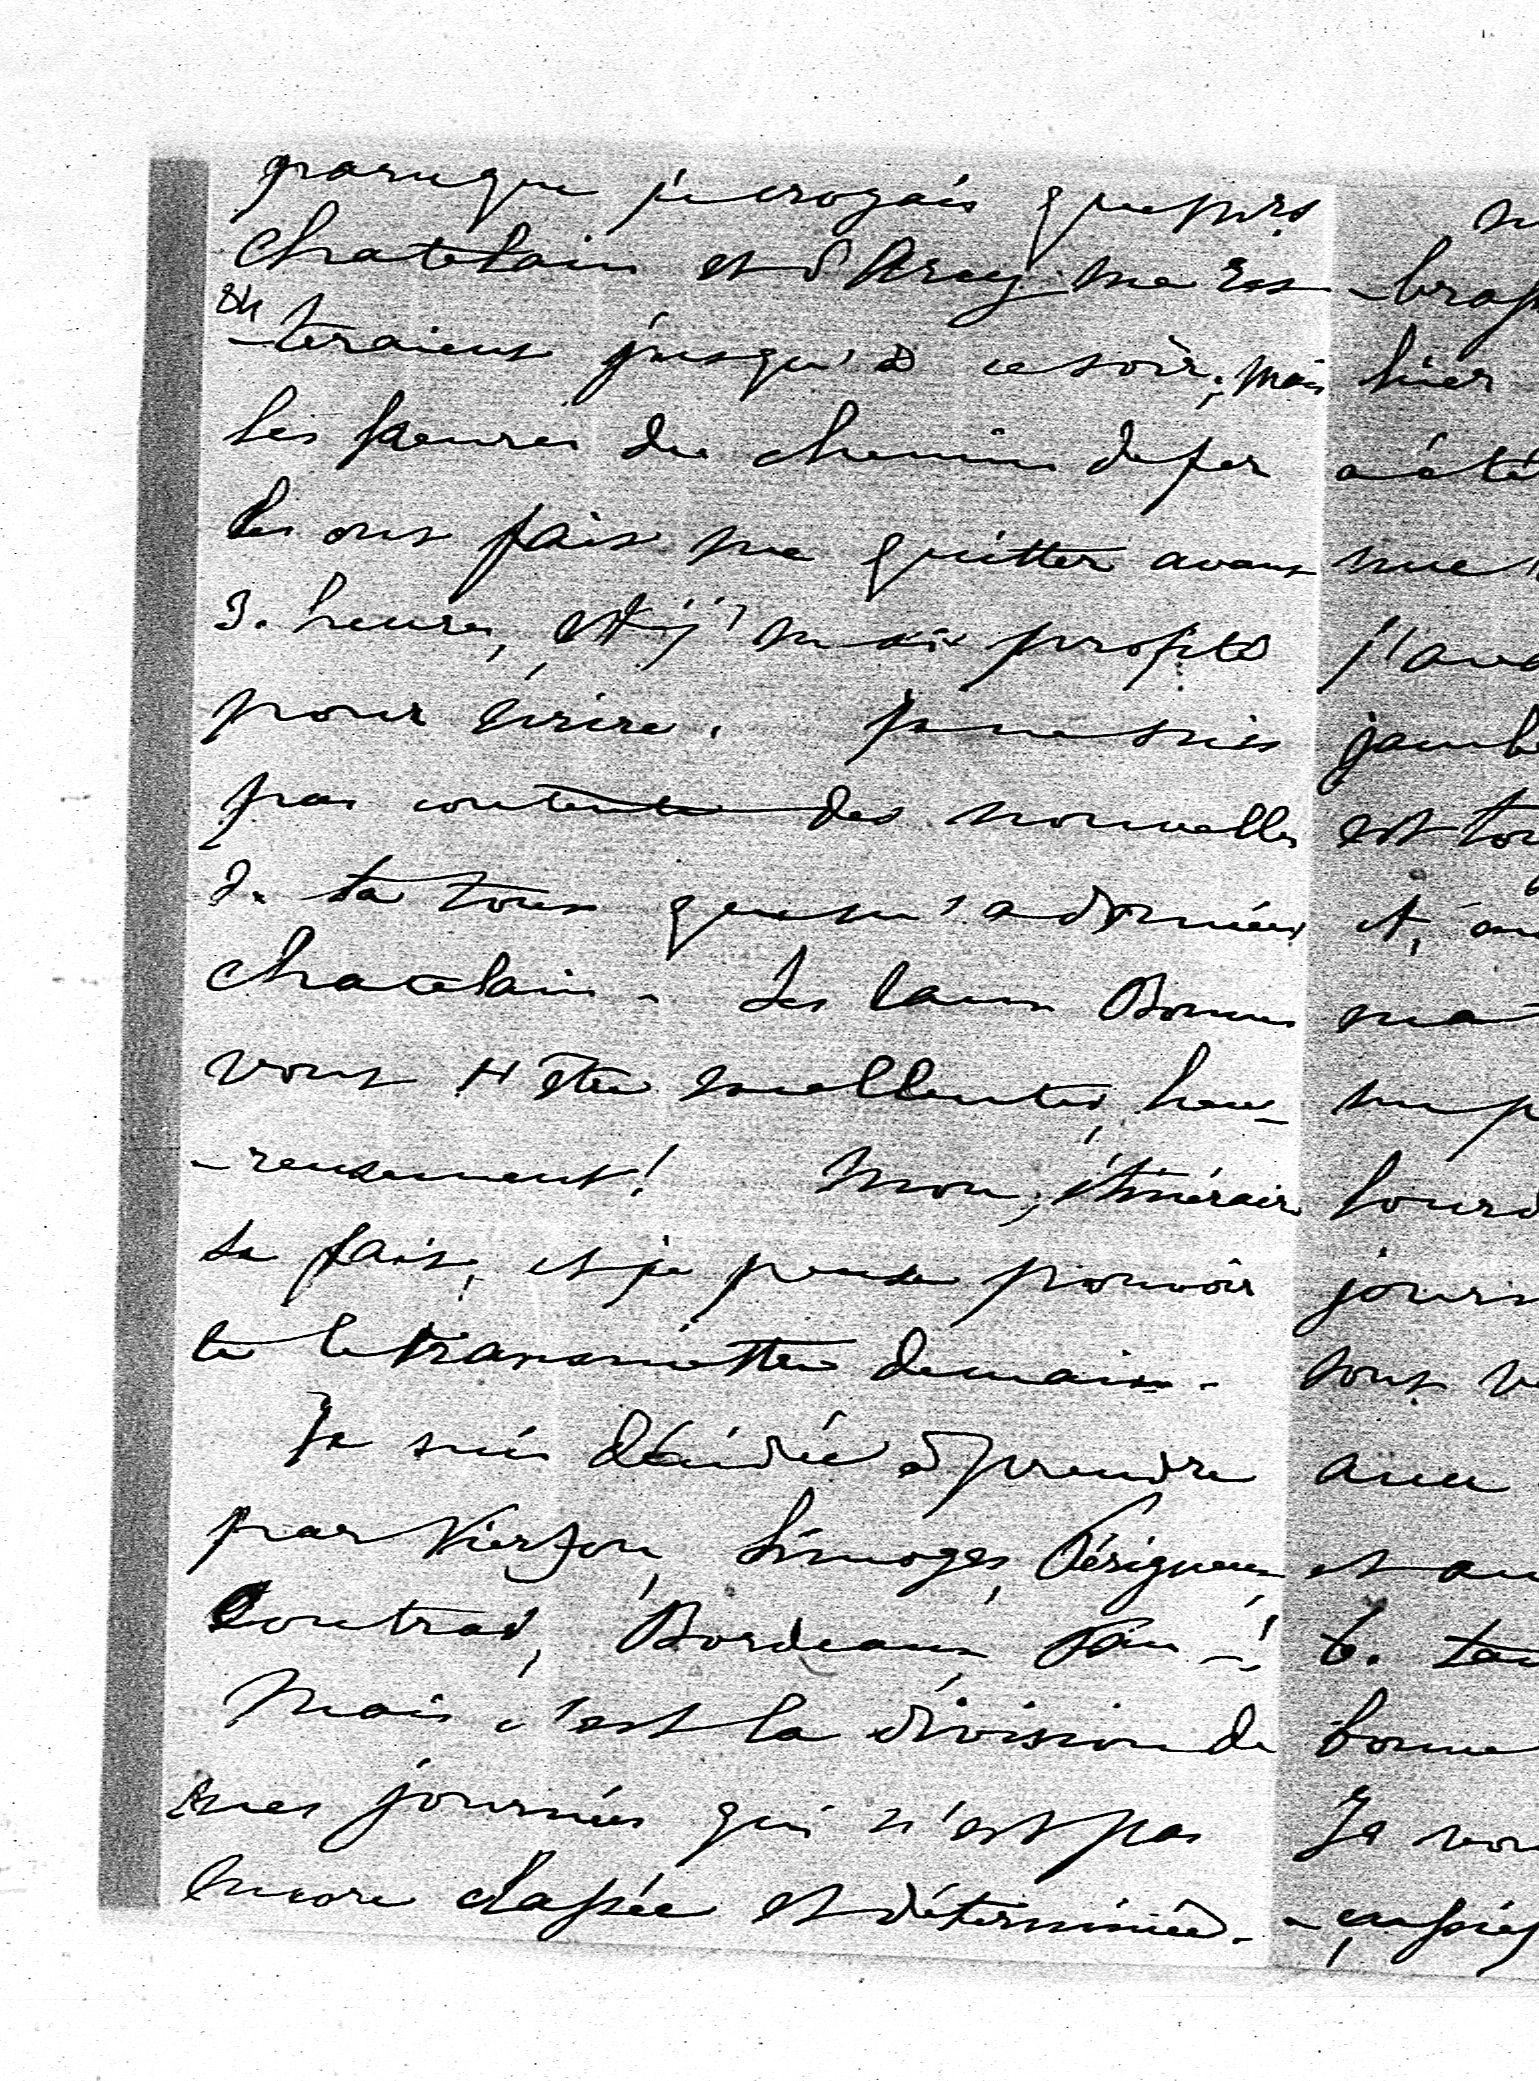 parceque je croyais que mrs
Chatelain et d'Arcy me res
-teraient jusqu'à ce soir; mais
les heures du chemin de fer
les ont fait me quitter avant
3. heures, et j'en ai profité
pour écrire. Je ne suis
pas contente des nouvelles
de ta toux que m'a données
Chatelain. Les Eaux Bonnes
vont t'être excellentes, heu-
-reusement! Mon itinéraire
se fait, et je pense pouvoir
te le transmettre demain.
Je suis décidée à prendre
par Vierzon, Limoges, Périgueux,
Coutras, Bordeaux, Pau -!
Mais c'est la division de
mes journées qui n'est pas
encore classée et déterminée.
-bras
hier
a été
j'ava
jamb
est tou
ma
lourd
journ
sont
avec
et au
6.
bonne
Je